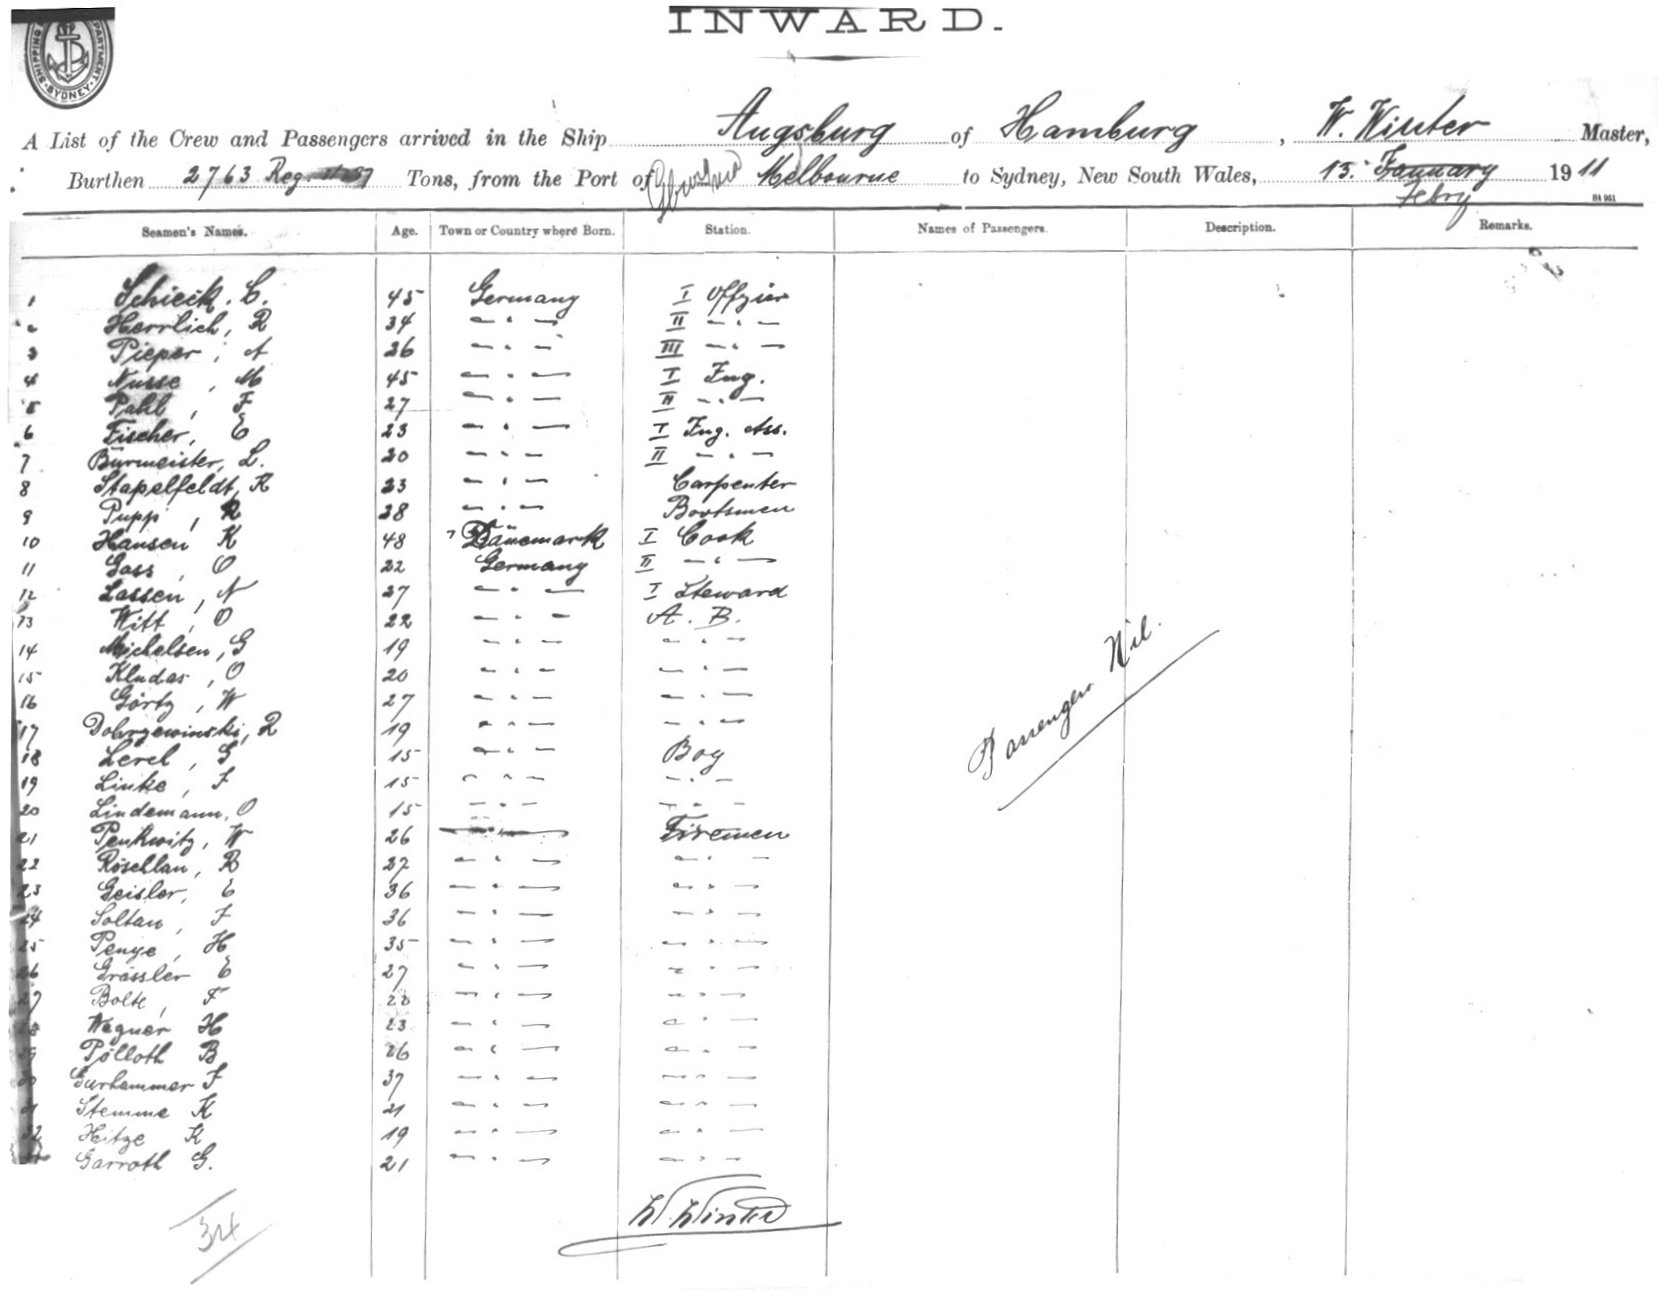 INWARD.
SHIPPING DEPARTMENT SYDNEY
A List of the Crew and Passengers arrived in the Ship Augsburg of Hamburg, W. Winter Master,
Burthen 2763 Reg. Tons, from the Port of Melbourne to Sydney, New South Wales, 13. January 1911
Febry
Seamen's Names. Age. Town or Country where Born. Station. Names of Passengers. Description. Remarks.
1 Schieck. C. 45 Germany I Offzier
2 Herrlich, R 34 - " - II - " -
3 Pieper, A 26 - " - III - " -
4 Nusse, M 45 - " - I Eng.
5 Pahl, F 27 - " - II - " -
6 Fischer, E 23 - " - I Eng. Ass.
7 Burmeister, L. 20 - " - II - " -
8 Stapelfeldt, K 23 - " - Carpenter
9 Pupp, R 28 - " - Bootsmen
10 Hansen K 48 Dänemark I Cook
11 Gass, O 22 Germany II - " -
12 Lassen, N 27 - " - I Steward
13 Witt, O 22 - " - A. B.
14 Michelsen, G 19 - " - - " -
15 Kludas, O 20 - " - - " -
16 Görtz, W 27 - " - - " -
17 Dobrzewinski, R 19 - " - - " -
18 Lerel, G 15 - " - Boy
19 Linke, F 15 - " - - " -
20 Lindemann, O 15 - " - - " -
21 Penkwitz, W 26 - " - Firemen
22 Röschlau, R 27 - " - - " -
23 Geisler, E 36 - " - - " -
24 Soltau, F 36 - " - - " -
25 Penye, H 35 - " - - " -
26 Grässler E 27 - " - - " -
27 Bolte, F 22 - " - - " -
28 Wegner H 23 - " - - " -
29 Pölloth B 26 - " - - " -
30 Gurhammer F 37 - " - - " -
31 Stemme K 21 - " - - " -
32 Hitze K 19 - " - - " -
Garroth G. 21 - " - - " -
Passengers Nil.
W. Winter
34